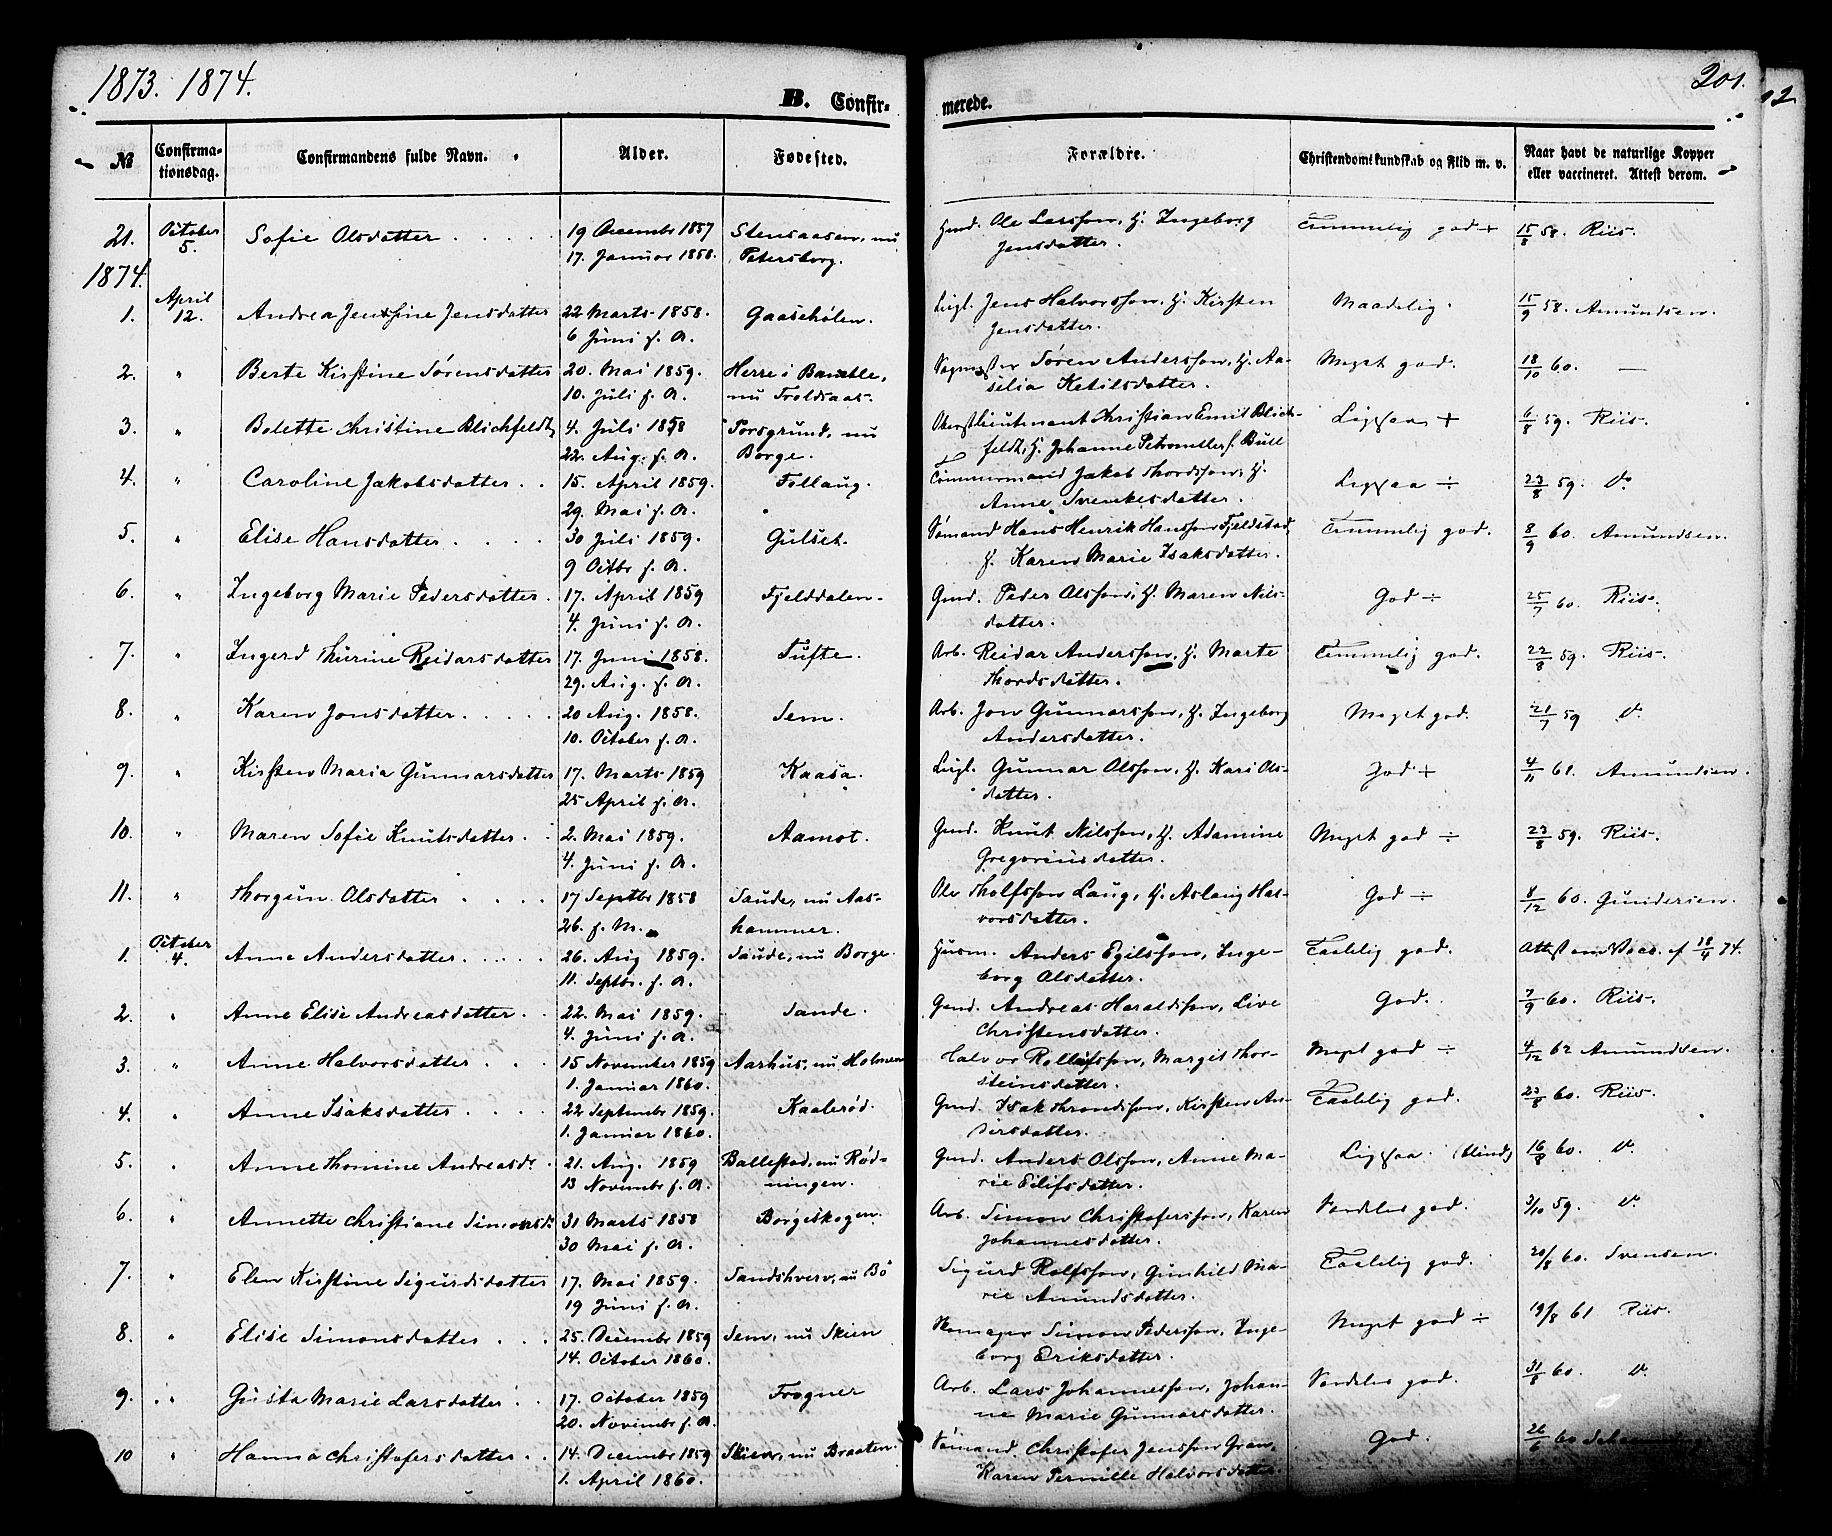 1873. 1874.
B. Confir-
merede.
201.
12
№
Confirma-
tionsdag.
Confirmandens fulde Navn.
Alder.
Fødested.
Forældre.
Christendomskundskab og Flid m. v.
Naar havt de naturlige Kopper
eller vaccineret. Attest derom.
21. October 5. Sofie Olsdatter 19 December 1857 Stensaasen, nu Gmd. Ole Larsson, H. Ingeborg Temmelig god + 15/8 58. Riis.
17. Januar 1858. Petersborg. Jensdatter.
1874.
1. April 12. Andrea Jensine Jensdatter 22 Marts 1858. Gaasehølen. Leigl. Jens Halvorsson, H. Kirsten Maadelig. 15/9 58. Amundsen.
6 Juni s. A. Jensdatter.
2. " Berte Kirstine Sørensdatter 20. Mai 1859. Herre i Bamble, Søren Andersson, H. Aa- Meget god. 18/10 60. —
10. Juli s. A. nu Troldsaas. silia Ketilsdatter.
3. " Bolette Christine Blichfeldt 4. Juli 1858 Porsgrund, nu Oberstlieutnant Christian Emil Blich- Ligesaa + 6/8 59. Riis.
22. Aug. s. A. Borge. feldt, H. Johanne Petronelle f. Bull
4. " Caroline Jakobsdatter 15. April 1859. Follaug. Tømmermand Jakob Thordsson, H. Ligesaa ÷ 23/8 59. do
29. Mai s. A. Anne Svenkesdatter.
5. " Elise Hansdatter 30 Juli 1859. Gulset. Sømand Hans Henrik Hansson Fjeldstad, Temmelig god. 8/9 60. Amundsen.
9 Octbr s. A. H. Karen Marie Isaksdatter.
6. " Ingeborg Marie Pedersdatter 17. April 1859 Fjelddalen. Gmd. Peder Olsson, H. Maren Nils- God ÷ 25/7 60. Riis.
4. Juni s. A. datter.
7. " Ingerd Thurine Reidarsdatter 17. Juni 1858. Tufte. Arb. Reidar Andersson, H. Marte Temmelig god. 22/8 59. Riis.
29. Aug. s. A. Thordsdatter.
8. " Karen Jonsdatter 20 Aug. 1858. Sem. Arb. Jon Gunnarsson, H. Ingeborg Meget god. 21/7 59 do
10. October s. A. Andersdatter.
9. " Kirsten Maria Gunnarsdatter 17. Marts 1859 Kaasa. Leigl. Gunnar Olsson, H. Kari Ols- God + 4/11 61. Amundsen.
25 April s. A. datter.
10. " Maren Sofie Knutsdatter 2. Mai 1859. Aamot. Gmd. Knut Nilsson, H. Adamine Meget god ÷ 23/8 59. Riis.
4. Juni s. A. Gregoriusdatter.
11. " Thorgun Olsdatter 17 Septbr 1858 Saude, nu Aas- Ole Tholfsson Laug, H. Aslaug Hal- God ÷ 8/12 60. Gundersen.
26. s. M. hammer. vorsdatter.
1. October 4. Anne Andersdatter 26. Aug 1859. Saude, nu Borge. Husm. Anders Egilsson, Inge- Taalelig god. Attest om Vacc. af 18/4 74.
11. Septbr. s. A. borg Olsdatter.
2. " Anne Elise Andreasdatter 22. Mai 1859. Sande. Gmd. Andreas Haraldsson, Live God. 7/9 60. Riis.
4. Juni s. A. Christensdatter.
3. " Anne Halvorsdatter 15 November 1859 Aarhus, nu Holmen Halvor Rollefsson, Margit Thor- Meget god ÷ 4/12 62 Amundsen.
1. Januar 1860. steinsdatter.
4. " Anne Isaksdatter 22 Septembr 1859. Kaalerød. Gmd. Isak Throndsson, Kirsten An- Taalelig god. 23/8 60. Riis.
1. Januar 1860. dersdatter.
5. " Anne Thomine Andreasd. 21. Aug. 1859 Ballestad, nu Rød- Gmd. Anders Olsson, Anne Ma- Ligesaa (blind) 16/8 60. do
13 Novembr s. A. ningen. rie Eilifsdatter.
6. " Annette Christiane Simonsd. 31 Marts 1858 Borgeskogen. Arb. Simon Christofersson, Karen Særdeles god. 3/10 59. do
30 Mai s. A. Johannesdatter.
7. " Elen Kirstine Sigurdsdatter 17. Mai 1859. Sandshverv, nu Bø Sigurd Rolfsson, Gunhild Ma- Taalelig god. 20/8 60. Svensen.
19 Juni s. A. rie Amundsdatter.
8. " Elise Simonsdatter 25. December 1859 Sem, nu Skien Skomager Simon Pedersson, Inge- Meget god ÷ 19/8 61 Riis.
14. October 1860. borg Eriksdatter.
9. " Gusta Marie Larsdatter 17. October 1859 Frogner Arb. Lars Johannesson, Johan- Særdeles god. 31/8 60. do
20. Novembr s. A. ne Marie Gunnarsdatter.
10 " Hanna Christofersdatter 14. December 1859 Skien, nu Braaten. Sømand Christofer Jensson Gran, God. 26/6 60
1. April 1860. Karen Pernille Halvorsdatter.